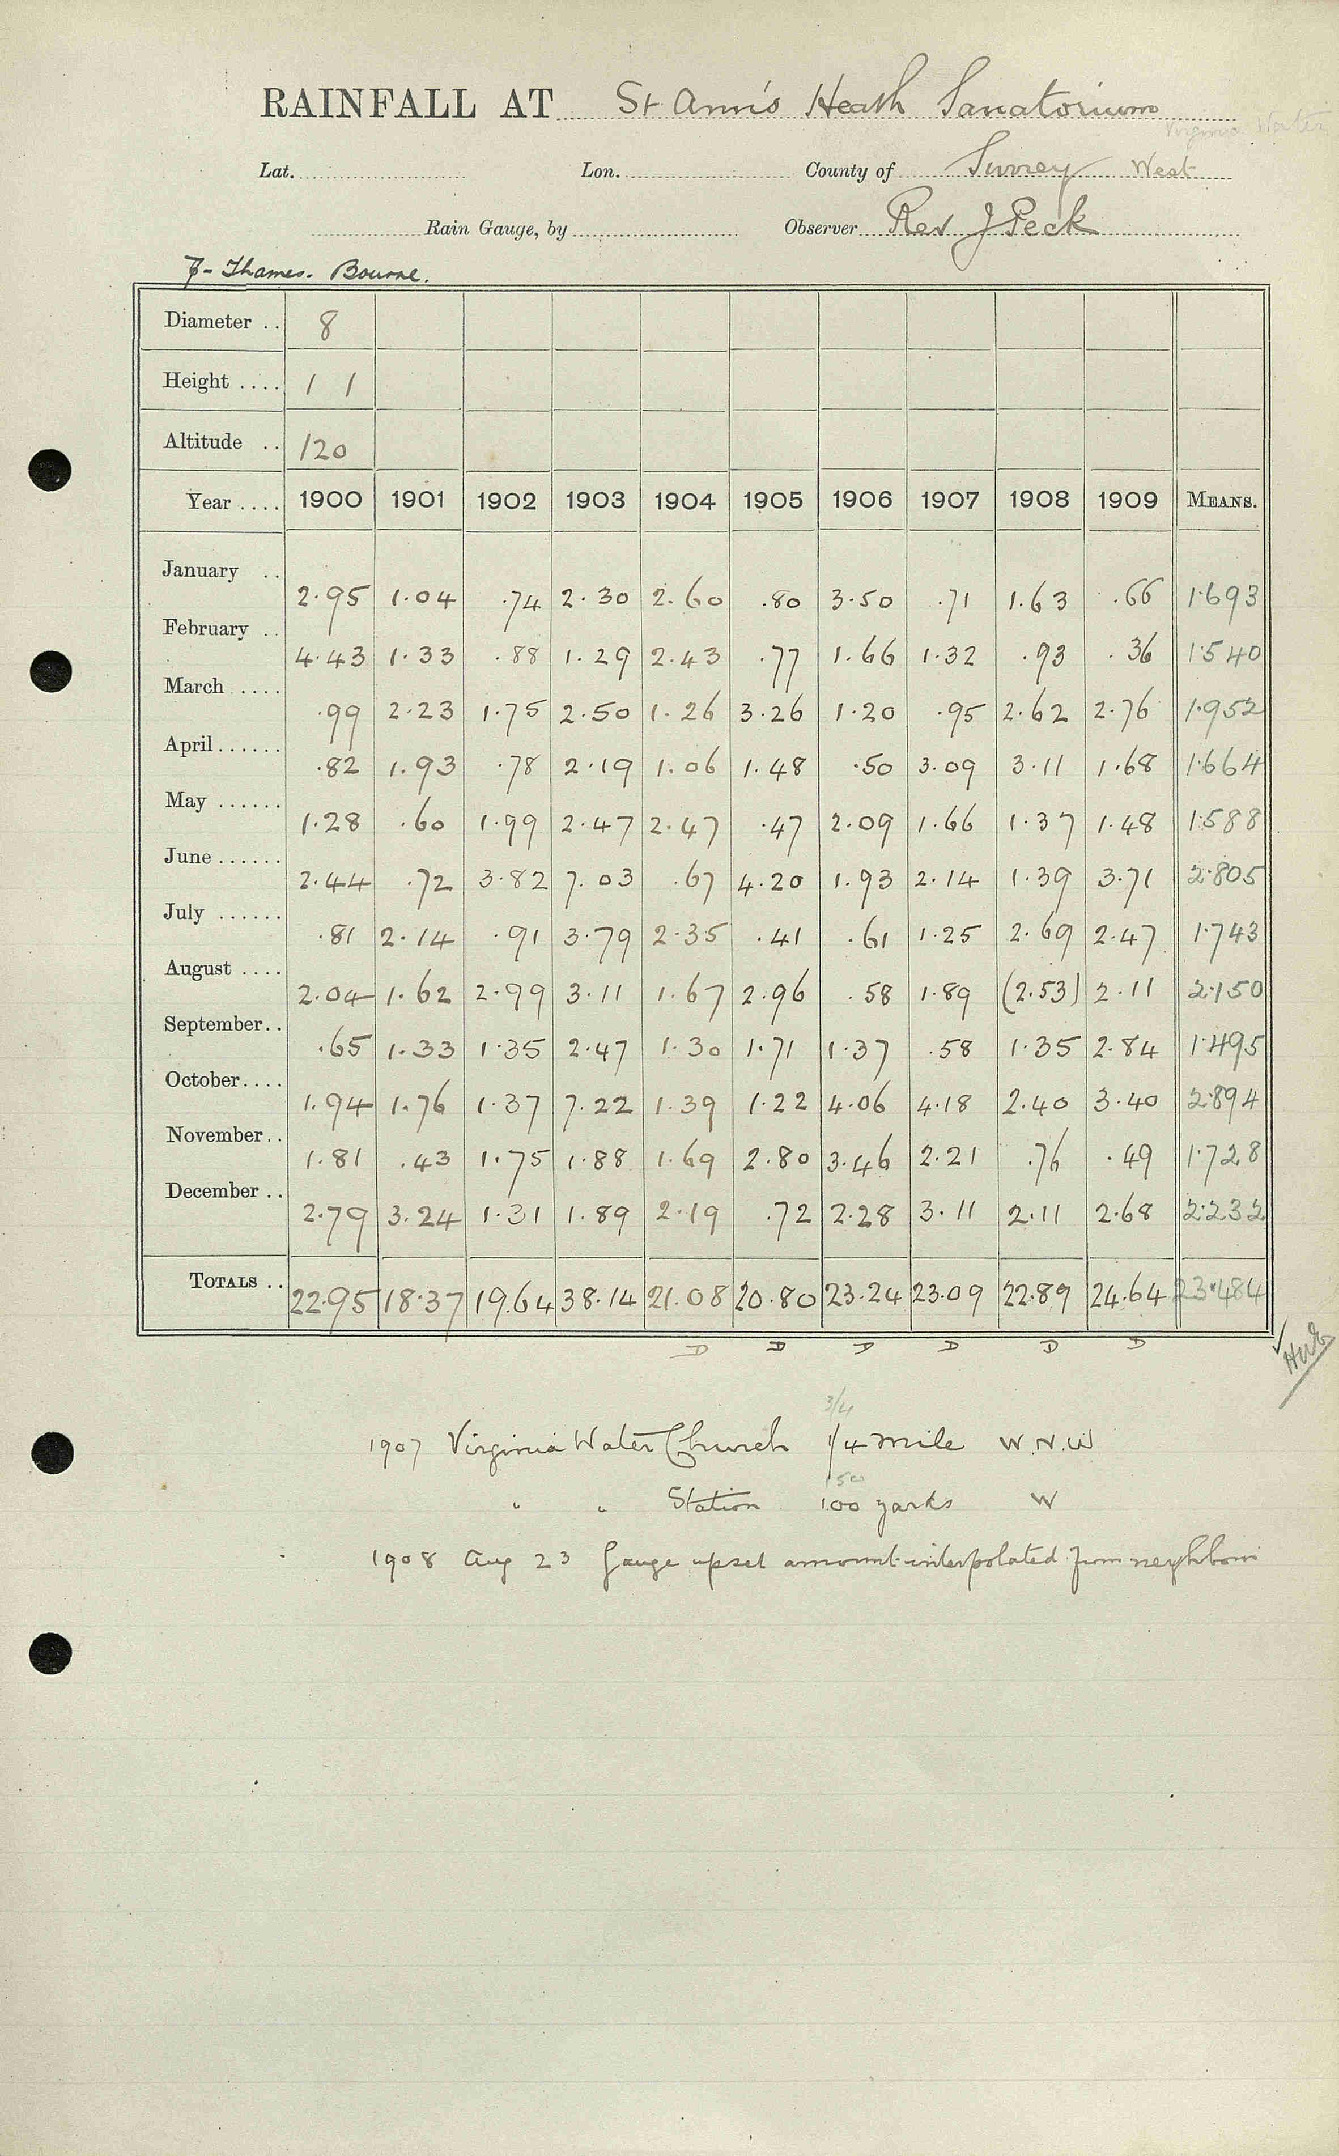 RAINFALL AT St Ann's Heath Sanatorium
Virginia Water
Lat. Lon. County of Surrey West
Rain Gauge, by Observer Rev J Peck
7- Thames. Bourne.
Diameter .. 8
Height .... 1 1
Altitude .. 120
Year .... 1900 1901 1902 1903 1904 1905 1906 1907 1908 1909 MEANS.
January .. 2.95 1.04 .74 2.30 2.60 .80 3.50 .71 1.63 .66 1.693
February .. 4.43 1.33 .88 1.29 2.43 .77 1.66 1.32 .93 .36 1.540
March .... .99 2.23 1.75 2.50 1.26 3.26 1.20 .95 2.62 2.76 1.952
April ...... .82 1.93 .78 2.19 1.06 1.48 .50 3.09 3.11 1.68 1.664
May ...... 1.28 .60 1.99 2.47 2.47 .47 2.09 1.66 1.37 1.48 1.588
June ...... 2.44 .72 3.82 7.03 .67 4.20 1.93 2.14 1.39 3.71 2.805
July ...... .81 2.14 .91 3.79 2.35 .41 .61 1.25 2.69 2.47 1.743
August .... 2.04 1.62 2.99 3.11 1.67 2.96 .58 1.89 (2.53) 2.11 2.150
September.. .65 1.33 1.35 2.47 1.30 1.71 1.37 .58 1.35 2.84 1.495
October.... 1.94 1.76 1.37 7.22 1.39 1.22 4.06 4.18 2.40 3.40 2.894
November.. 1.81 .43 1.75 1.88 1.69 2.80 3.46 2.21 .76 .49 1.728
December .. 2.79 3.24 1.31 1.89 2.19 .72 2.28 3.11 2.11 2.68 2.232
TOTALS .. 22.95 18.37 19.64 38.14 21.08 20.80 23.24 23.09 22.89 24.64 23.484
D D D D D D
3/4
1907 Virginia Water Church 1/4 mile W.N.W
150
" " Station 100 yards W
1908 Aug 23 Gauge upset amount interpolated from neighbour